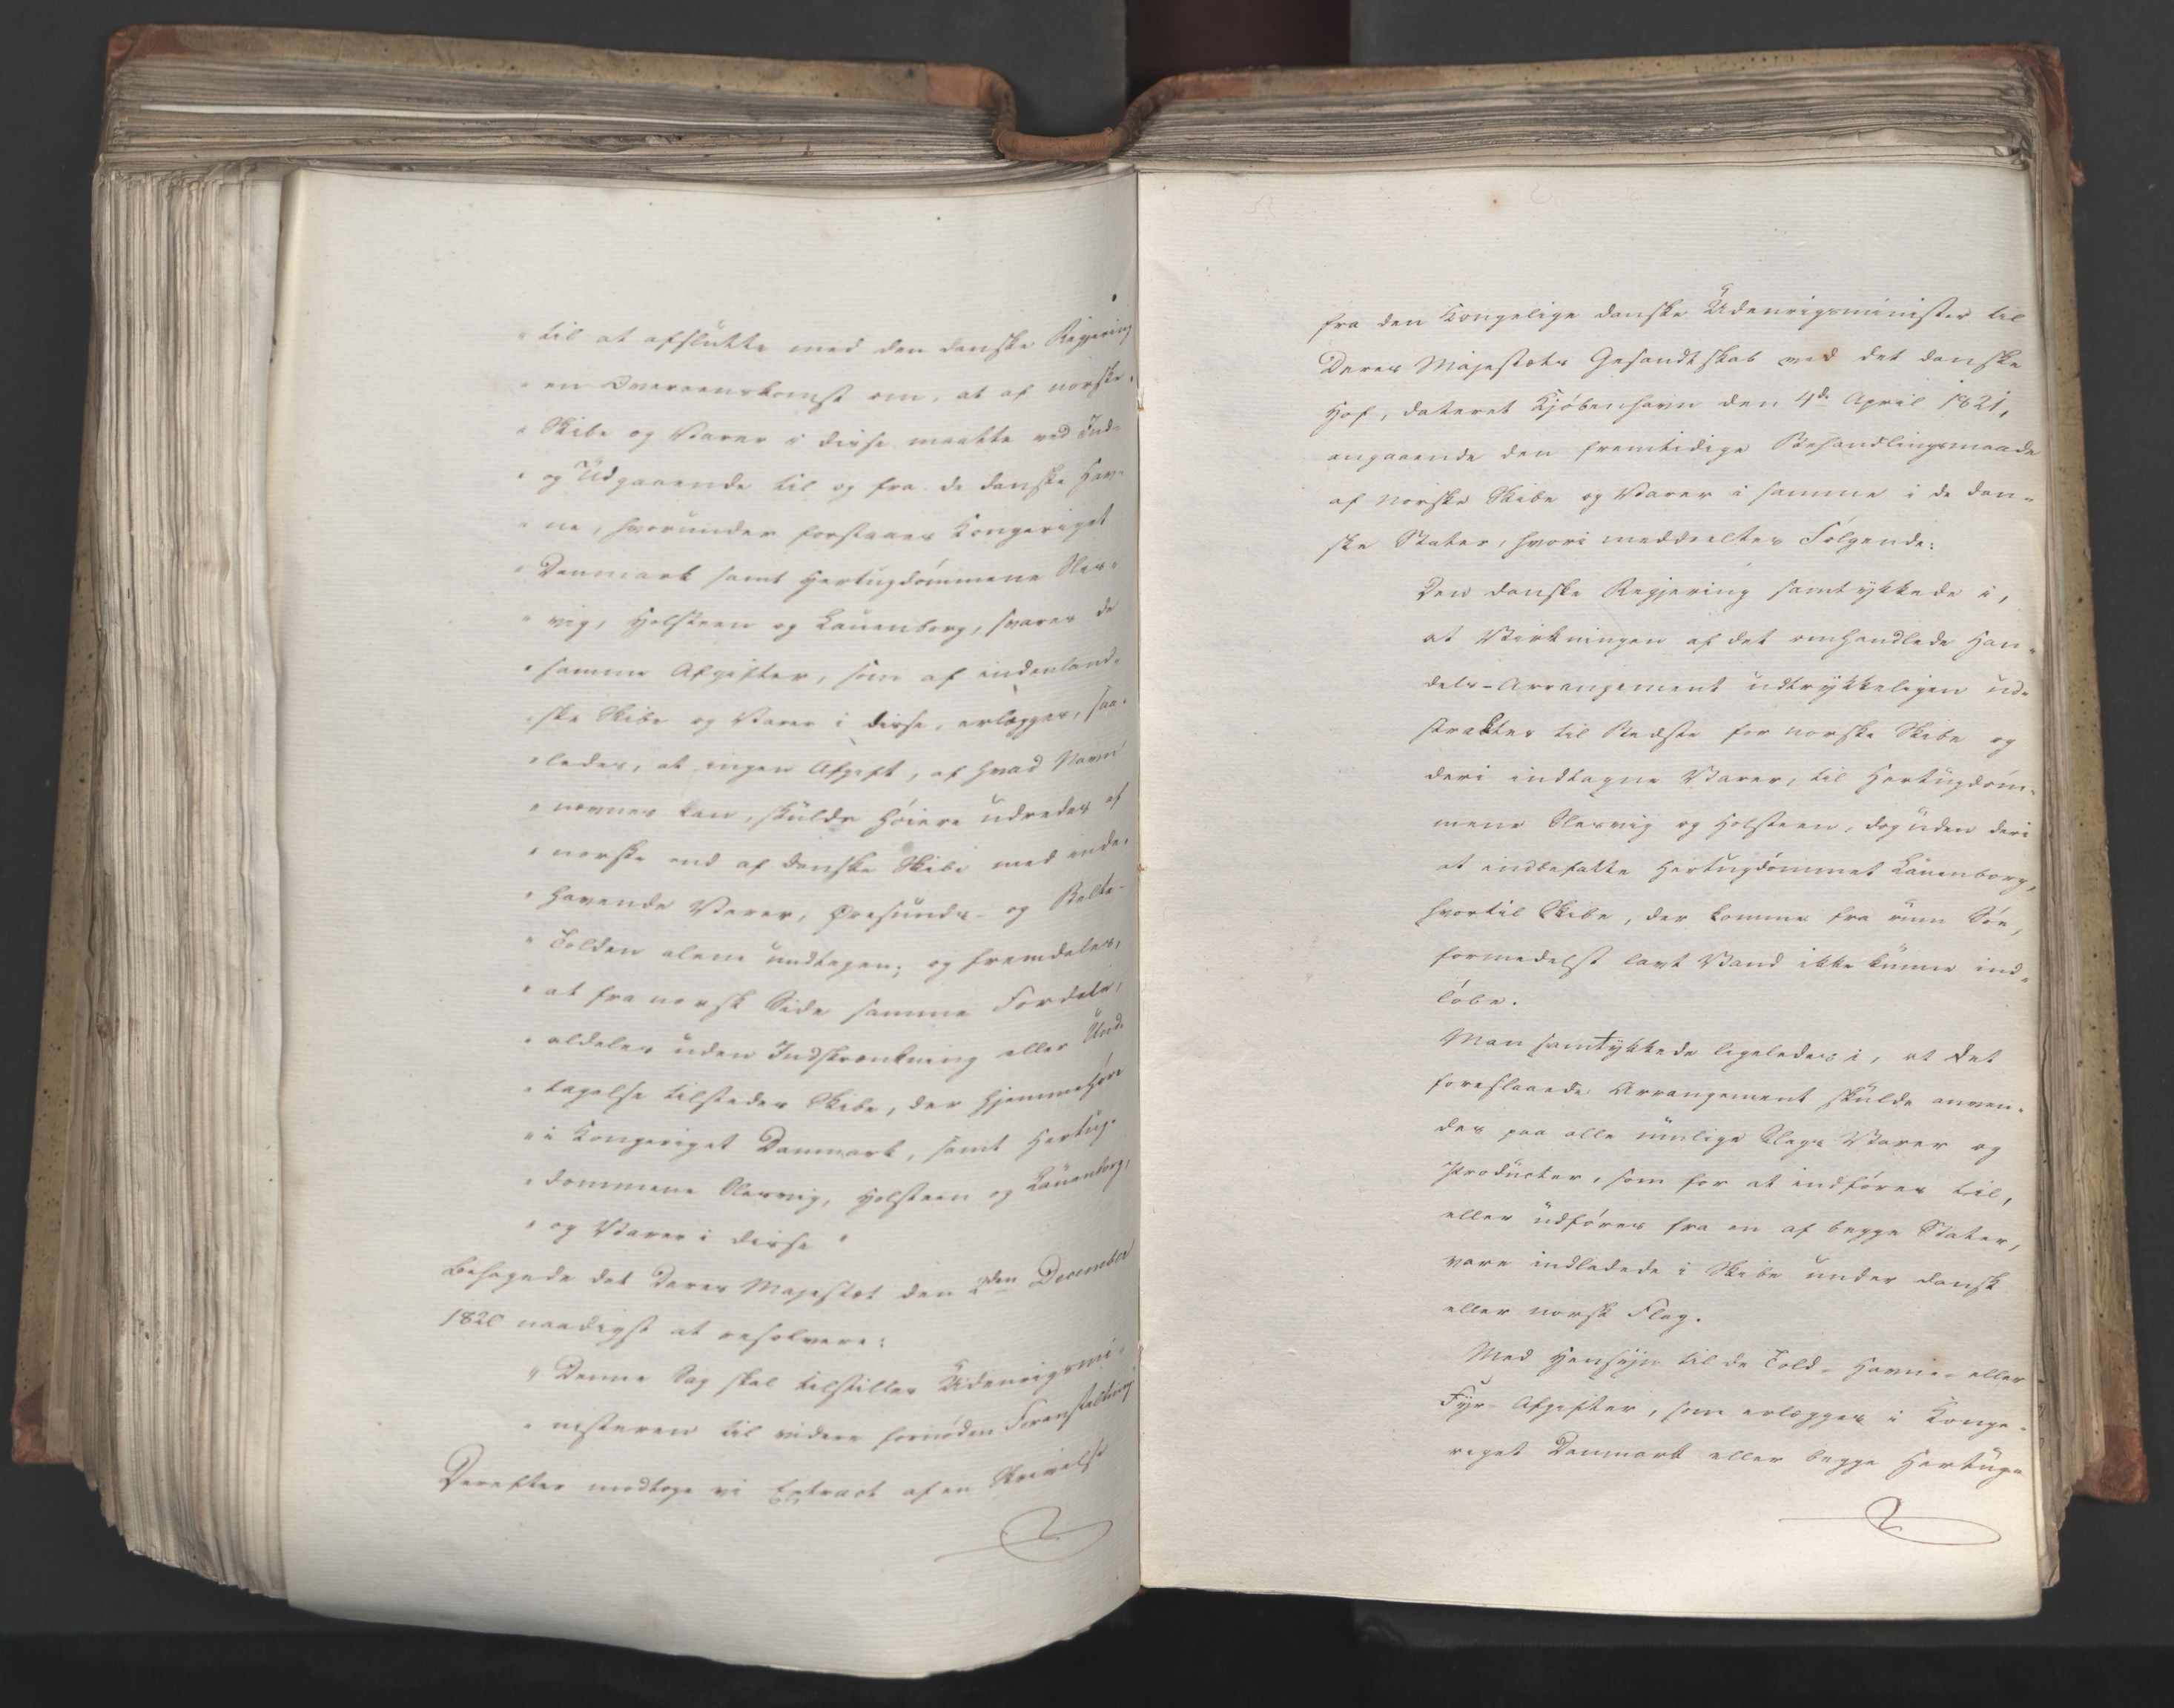 " til at afslutte med den danske Regjering
" en Overeenskomst om, at af norske
" Skibe og Varer i disse maatte ved Ind-
" og Udgaaende til og fra de danske Hav-
" ne, hvorunder forstaaes Kongeriget
" Danmark samt Hertugdømmene Sles-
" vig, Holsteen og Lauenborg, svares de
" samme Afgifter, som af indenland-
" ske Skibe og Varer i disse, erlægges, saa-
" ledes, at ingen Afgift, af hvad Navn
" nævnes kan, skulde høiere udredes af
" norske end af danske Skibe med inde-
" havende Varer, Øresunds- og Belte-
" Tolden alene undtagen; og fremdeles,
" at fra norsk Side samme Fordele,
" aldeles uden Indskrænkning eller Und-
" tagelse tilstedes Skibe, der hjemmehøre
" i Kongeriget Danmark, samt Hertug-
" dommene Slesvig, Holsteen og Lauenborg,
" og Varer i disse "
behagede det Deres Majestæt den 2den December
1820 naadigst at resolvere:
" Denne Sag skal tilstilles Udenrigsmi-
" nisteren til videre fornøden Foranstaltning
Derefter modtoge vi Extract af en Skrivelse
fra den Kongelige danske Udenrigsminister til
Deres Majestæts Gesandtskab ved det danske
Hof, dateret Kjøbenhavn den 4de April 1821,
angaaende den fremtidige Behandlingsmaade
af norske Skibe og Varer i samme i de dan-
ske Stater, hvori meddeeltes Følgende:
Den danske Regjering samtykkede i,
at Virkningen af det omhandlede Han-
dels-Arrangement udtrykkeligen ud-
strækkes til Bedste for norske Skibe og
deri indtagne Varer, til Hertugdøm-
mene Slesvig og Holsteen, dog uden deri
at indbefatte Hertugdømmet Lauenborg,
hvortil Skibe, der komme fra rum Søe,
formedelst lavt Vand ikke kunne ind-
løbe.
Man samtykkede ligeledes i, at det
foreslaaede Arrangement skulde anven-
des paa alle mulige Slags Varer og
Producter, som for at indføres til,
eller udføres fra en af begge Stater,
vare indladede i Skibe under dansk
eller norsk Flag.
Med Hensyn til de Told- Havne- eller
Fyr- Afgifter, som erlægges i Konge-
riget Danmark eller begge Hertug-